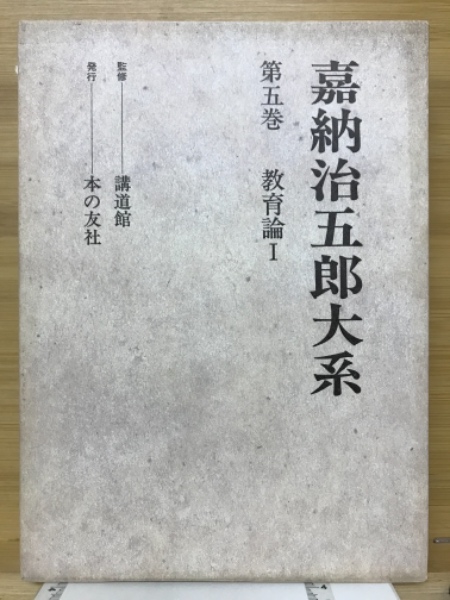 嘉納治五郎大系
第五巻 教育論Ⅰ
監修――講道館
発行――本の友社